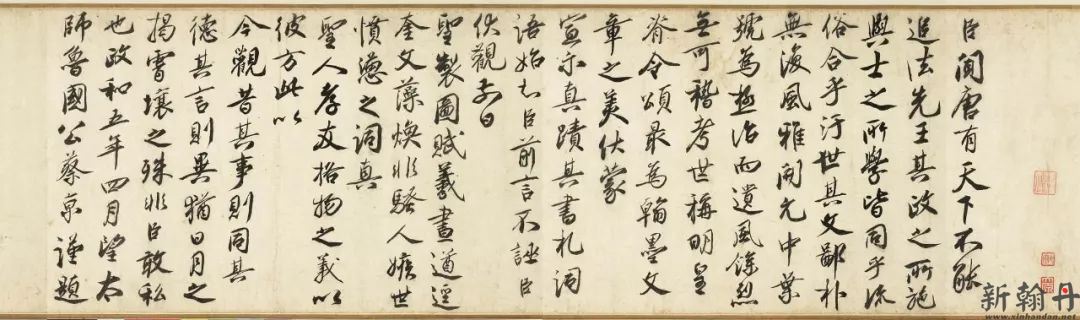 臣聞唐有天下不能
追法先王其政之所施
與士之所學皆同乎流
俗合乎汙世其文鄙朴
無風雅開元中葉
號為極治而遺風餘烈
無可稽考世稱明皇
脊令頌最為翰墨文
章之美伏蒙
宣示真蹟其書札詞
語始知臣前言不誣臣
伏觀前日
聖製圖賦羲畫遒逕
奎文藻煥非騷人嫉世
憤懣之詞真
聖人孝友格物之義以
彼方此以
今觀昔其事則同其
德其言則異猶日月之
揭霄壤之殊非臣敢私
也政和五年四月望太
師魯國公蔡京謹題
新翰丹
www.xinhandan.net